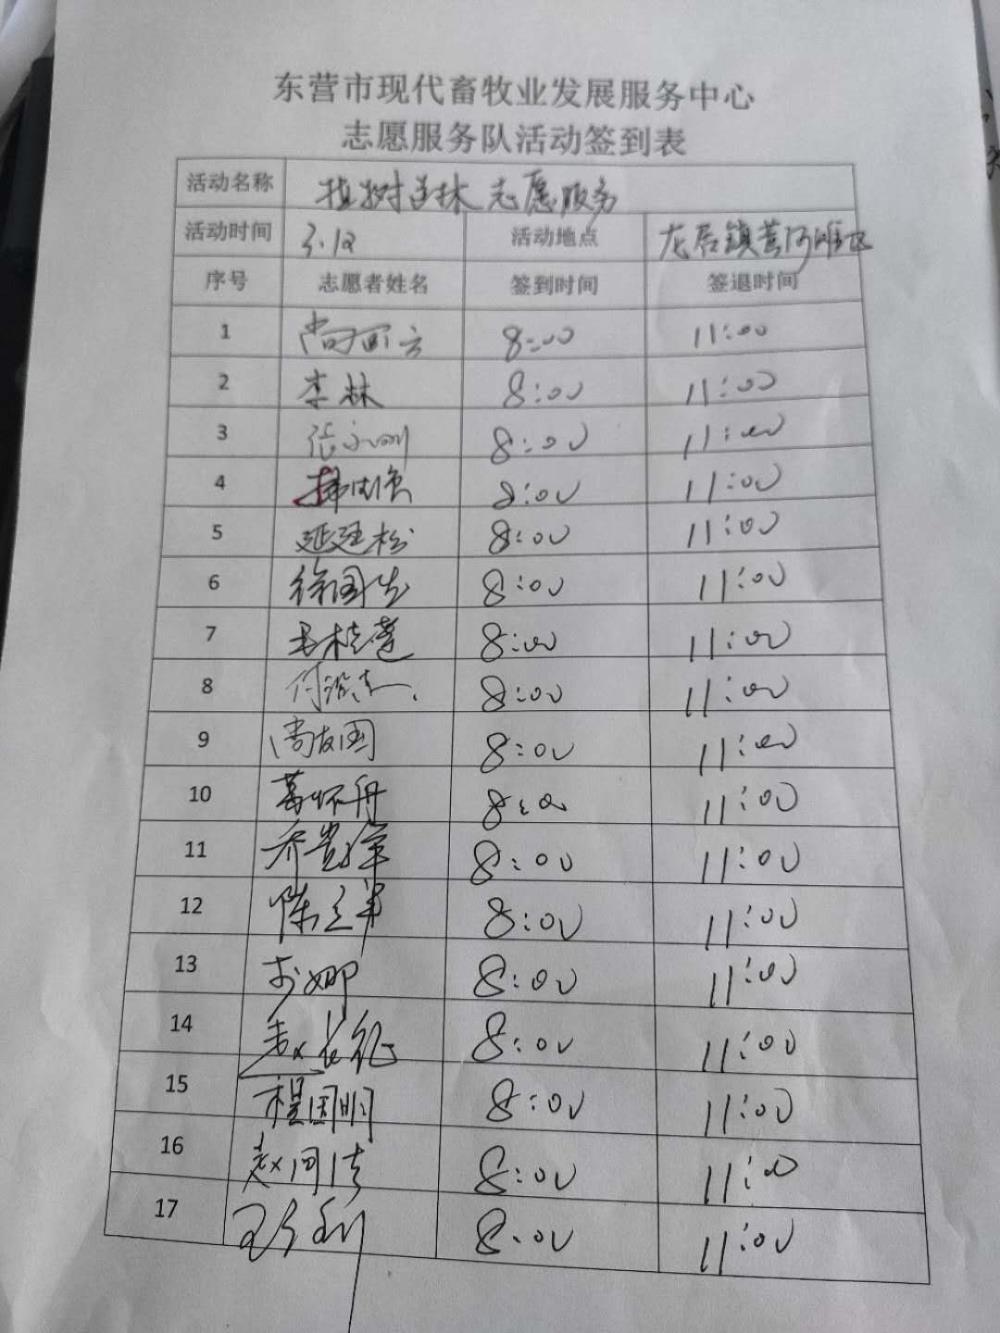 东营市现代畜牧业发展服务中心
志愿服务队活动签到表
活动名称 植树造林志愿服务
活动时间 3.12 活动地点 龙居镇黄河滩区
序号 志愿者姓名 签到时间 签退时间
1 8:00 11:00
2 李林 8:00 11:00
3 张永刚 8:00 11:00
4 8:00 11:00
5 延廷松 8:00 11:00
6 徐国 8:00 11:00
7 桂莲 8:00 11:00
8 付 8:00 11:00
9 尚友国 8:00 11:00
10 葛怀舟 8:00 11:00
11 乔贵 8:00 11:00
12 陈立 8:00 11:00
13 娜 8:00 11:00
14 赵长征 8:00 11:00
15 程国明 8:00 11:00
16 赵 8:00 11:00
17 8:00 11:00